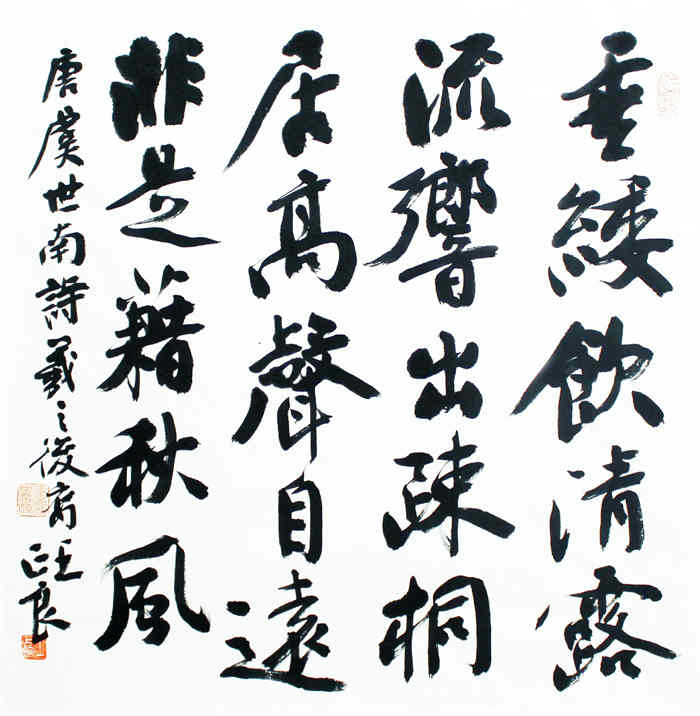 垂緌飲清露
流響出疎桐
居高聲自遠
非是藉秋風
唐虞世南詩羲之後裔 王良